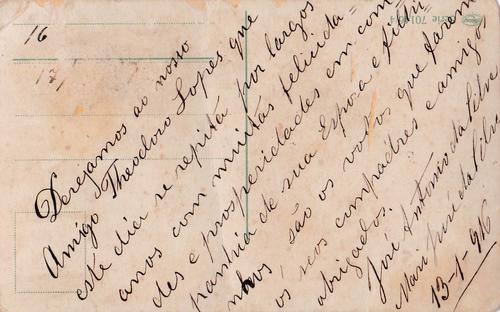 16
17
Série 701
Desejamos ao nosso
Amigo Theodoro Lopes que
este dia se repita por largos
anos com muitas felicida=
des e prosperidades em com
panhia de sua Espoza e filhi=
nhos, são os votos que fazem
os seos compadres e amigos
obrigados.
José Antonio da Silva
Maria da Silva
13-1-916